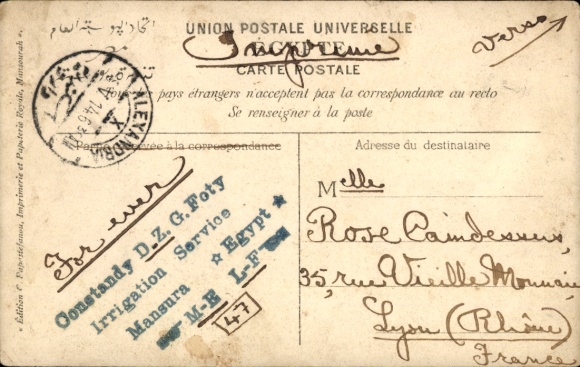 UNION POSTALE UNIVERSELLE
ÉGYPTE
Imprimé
Verso
CARTE POSTALE
Tous les pays étrangers n'acceptent pas la correspondance au recto
Se renseigner à la poste
ALEXANDRIA
Partie réservée à la correspondance
Adresse du destinataire
For ever
Constandy D. Z. G. Foty
Irrigation Service
Mansura ★ Egypt ★
M-E L-F
47
Melle
Rose Camdessus,
35, rue Vieille Monnaie
Lyon (Rhône)
France
« Édition C. Papastefanou, Imprimerie et Papeterie Royale, Mansourah ».